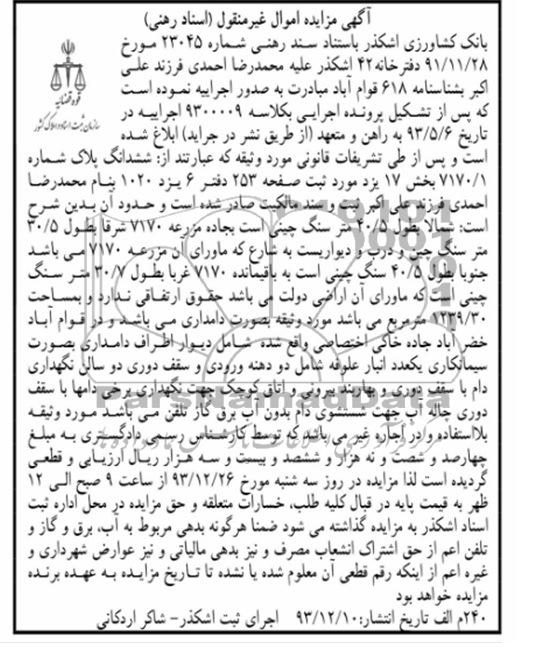 آگهی مزایده اموال غیرمنقول (اسناد رهنی)
بانک کشاورزی اشکذر باستناد سند رهنی شماره ۲۳۰۴۵ مورخ
۹۱/۱۱/۲۸ دفترخانه ۴۲ اشکذر علیه محمدرضا احمدی فرزند علی
اکبر بشناسنامه ۶۱۸ قوام آباد مبادرت به صدور اجراییه نموده است
که پس از تشکیل پرونده اجرایی بکلاسه ۹۳۰۰۰۰۹ اجراییه در
تاریخ ۹۳/۵/۶ به راهن و متعهد (از طریق نشر در جراید) ابلاغ شده
قوه قضائیه
سازمان ثبت اسناد و املاک کشور
است و پس از طی تشریفات قانونی مورد وثیقه که عبارتند از: ششدانگ پلاک شماره
۷۱۷۰/۱ بخش ۱۷ یزد مورد ثبت صفحه ۲۵۳ دفتر ۶ یزد ۱۰۲۰ بنام محمدرضا
احمدی فرزند علی اکبر ثبت و سند مالکیت صادر شده است و حدود آن بدین شرح
است: شمالا بطول ۴۰/۵ متر سنگ چینی است بجاده مزرعه ۷۱۷۰ شرقا بطول ۳۰/۵
متر سنگ چین و درب و دیواریست به شارع که ماورای آن مزرعه ۷۱۷۰ می باشد
جنوبا بطول ۴۰/۵ سنگ چینی است به باقیمانده ۷۱۷۰ غربا بطول ۳۰/۷ متر سنگ
چینی است که ماورای آن اراضی دولت می باشد حقوق ارتفاقی ندارد و بمساحت
۱۲۳۹/۳۰ مترمربع می باشد مورد وثیقه بصورت دامداری می باشد و در قوام آباد
خضرآباد جاده خاکی اختصاصی واقع شده شامل دیوار اطراف دامداری بصورت
سیمانکاری یکعدد انبار علوفه شامل دو دهنه ورودی و سقف دوری دو سالن نگهداری
دام با سقف دوری و بهاربند بیرونی و اتاق کوچک جهت نگهداری برخی دامها با سقف
دوری چاله آب جهت شستشوی دام بدون آب برق گاز تلفن می باشد مورد وثیقه
بلااستفاده و در اجاره غیر می باشد که توسط کارشناس رسمی دادگستری به مبلغ
چهارصد و شصت و نه هزار و ششصد و بیست و سه هزار ریال ارزیابی و قطعی
گردیده است لذا مزایده در روز سه شنبه مورخ ۹۳/۱۲/۲۶ از ساعت ۹ صبح الی ۱۲
ظهر به قیمت پایه در قبال کلیه طلب، خسارات متعلقه و حق مزایده در محل اداره ثبت
اسناد اشکذر به مزایده گذاشته می شود ضمنا هرگونه بدهی مربوط به آب، برق و گاز و
تلفن اعم از حق اشتراک انشعاب مصرف و نیز بدهی مالیاتی و نیز عوارض شهرداری و
غیره اعم از اینکه رقم قطعی آن معلوم شده یا نشده تا تاریخ مزایده به عهده برنده
مزایده خواهد بود
۲۴۰م الف تاریخ انتشار: ۹۳/۱۲/۱۰ اجرای ثبت اشکذر- شاکر اردکانی